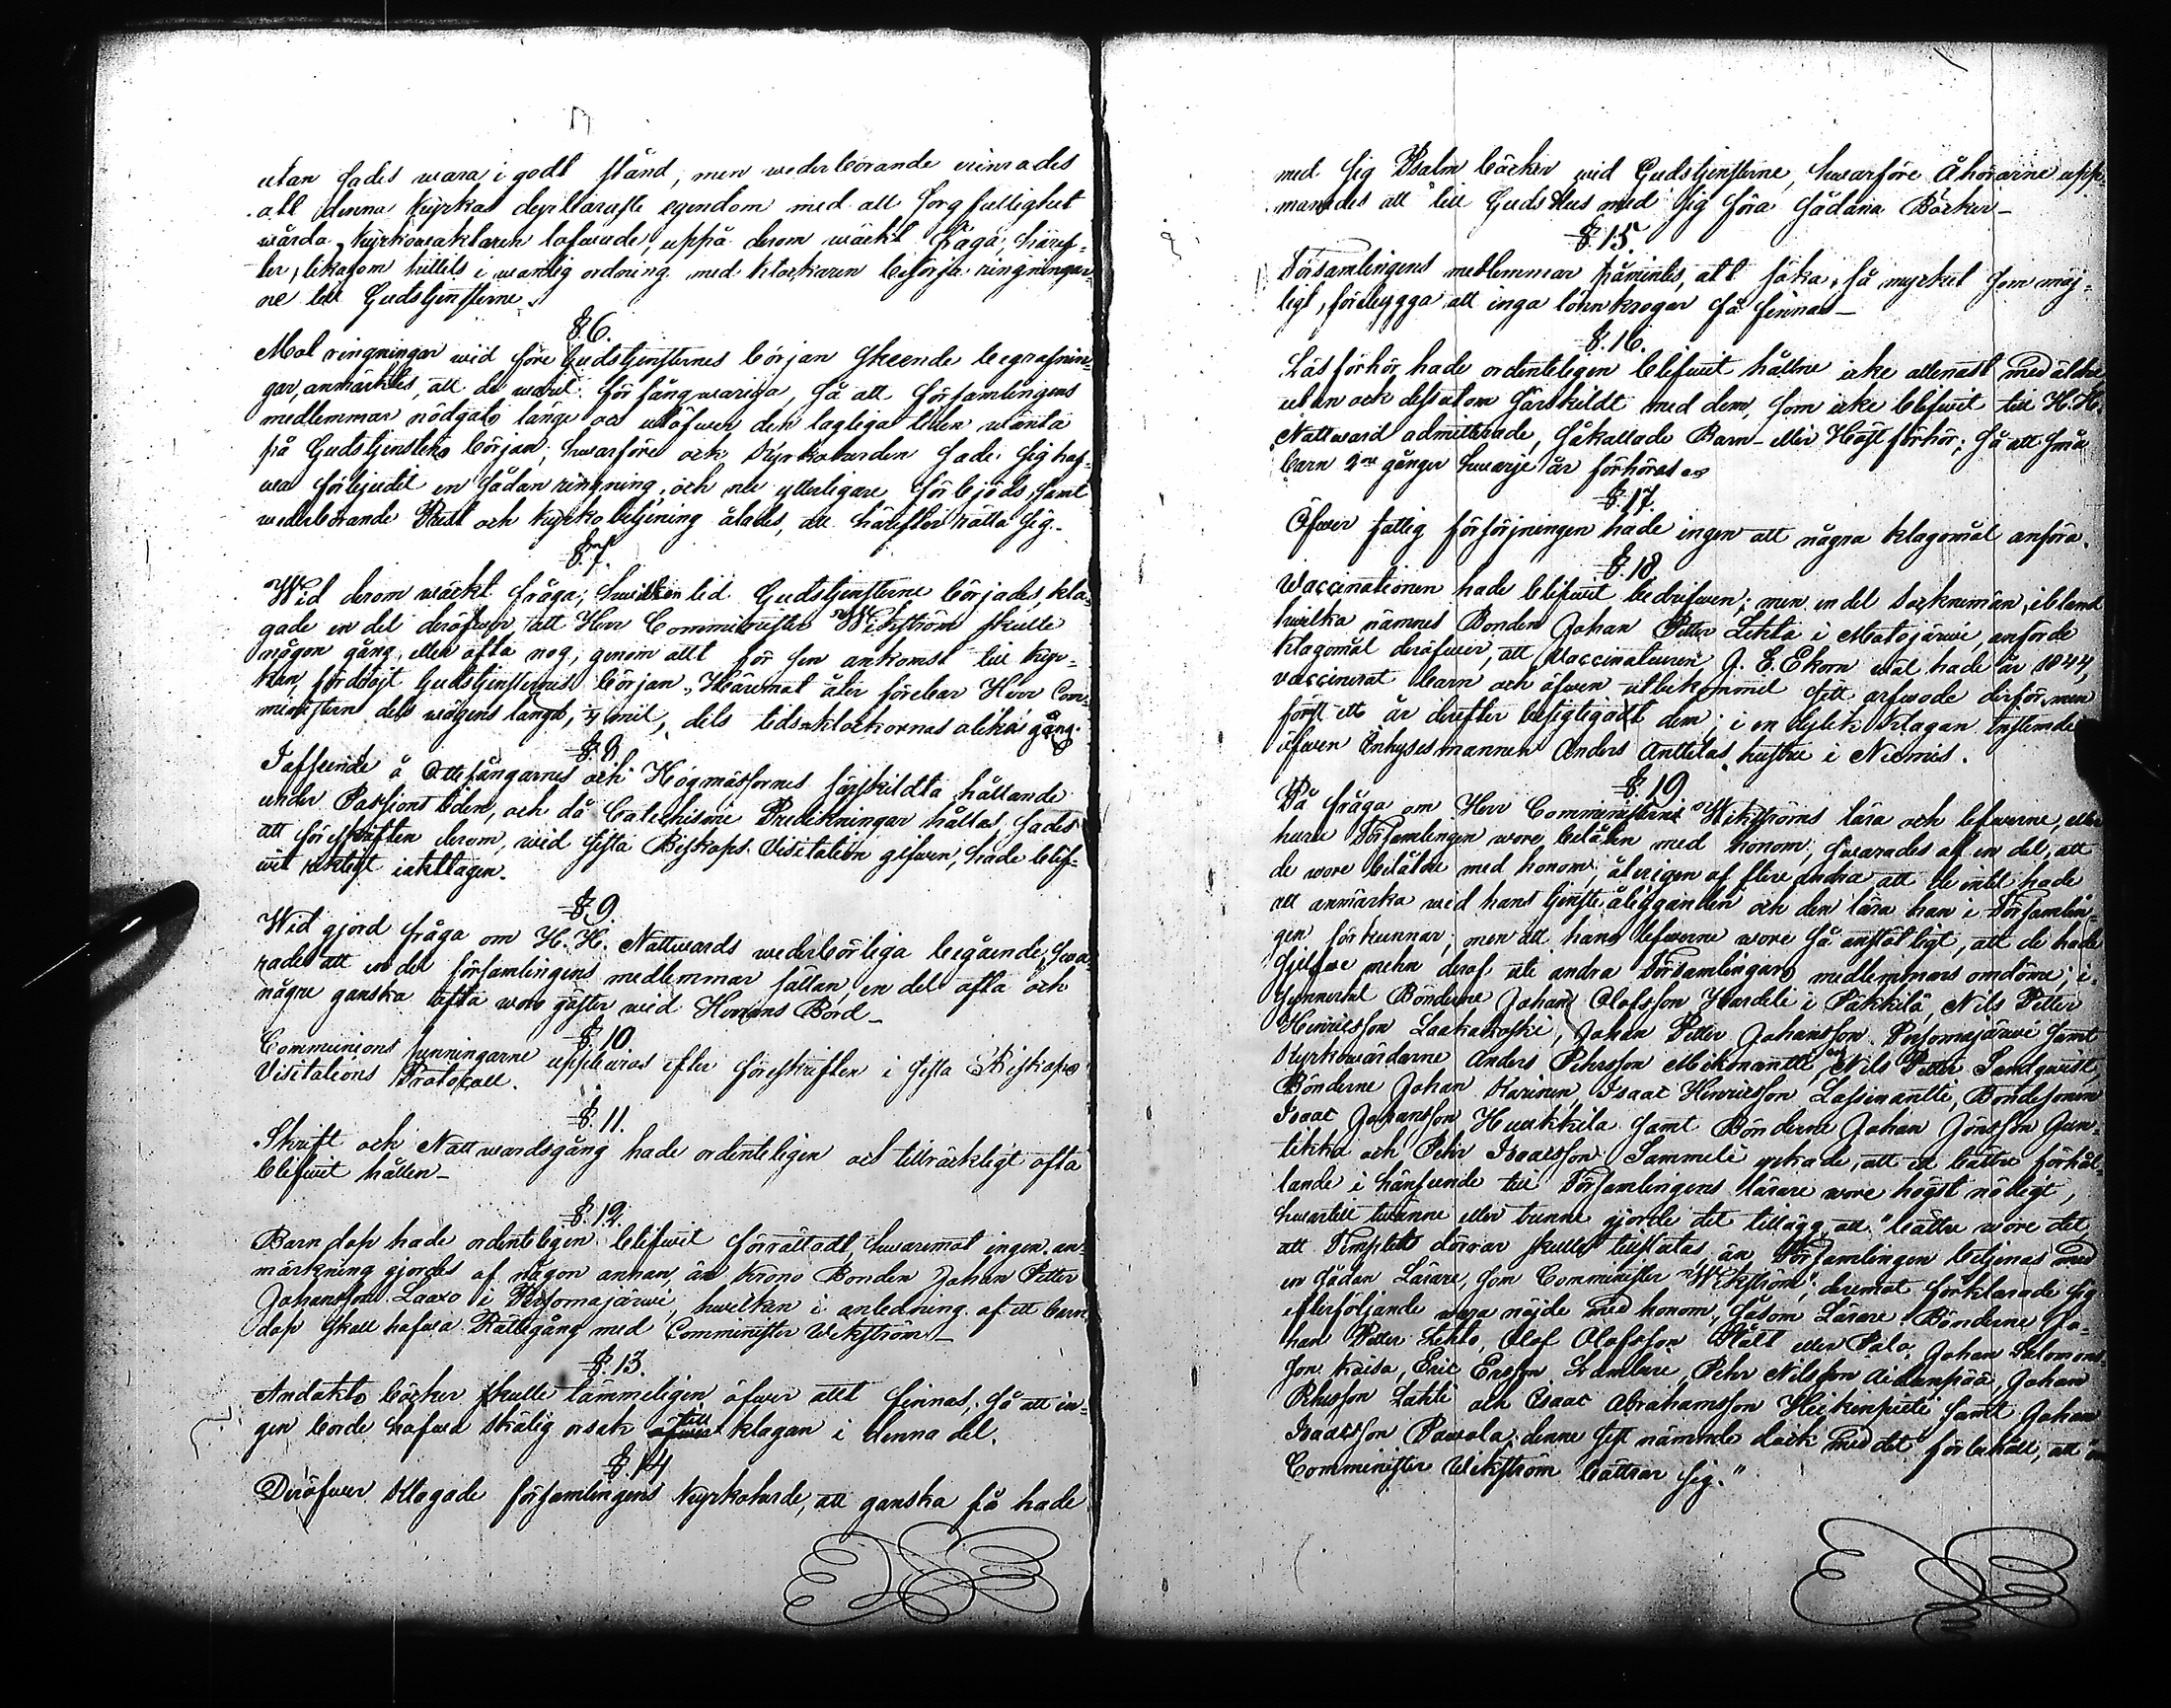 utan sades wara i godt stånd, men wederbörande erinrades
att denna Kyrkas dyrbaraste egendom med all sorgfällighet
wårda, Kyrkowaktaren lofwade, uppå derom wäckt fråga, häref-
ter, likasom hittils i wanlig ordning med klockaren besörja ringningar-
ne till Gudstjensterne.
§. 6.
Mot ringningar wid före Gudstjensternes början skeende begrafnin-
gar, anmärktes, att de warit för långwariga, så att församlingens
medlemmar nödgats länge och utöfwer den lagliga tiden wänta
på Gudstjenstens början; hwarföre ock Kyrkoherden sade sig haf-
wa förbjudit en sådan ringning, och nu ytterligare förbjöds, samt
wederbörande Prest och Kyrkobetjening ålades, att härefter rätta sig.
§. 7.
Wid derom wäckt fråga; hwilken tid Gudstjensterne börjades, kla-
gade en del deröfwer att Herr Comminister Wikström skulle
någon gång, eller ofta nog, genom allt för sen ankomst till Kyr-
kan, fördröjt Gudstjensternes början. Häremot åter förebar Herr Com-
ministern dels wägens längd, ¼ mil, dels tids-klockornas olika gång.
§. 8.
I afseende å Ottesångarnes och Högmässornes särskildta hållande
under Passions tiden, och då Catechismi Predikningar hållas, sades
att föreskriften derom, wid sista Biskops Visitation gifwen, hade blif-
wit riktigt iakttagen.
§ 9.
Wid gjord fråga om H. H. Nattwards wederbörliga begående, swa-
rades att en del församlingens medlemmar sällan, en del ofta och
några ganska ofta wore gäster wid Herrans Bord_
§. 10.
Communions penningarne uppbäras efter föreskriften i sista Biskops
Visitations Protocoll.
§. 11.
Skrift och Nattwardsgång hade ordenteligen och tillräckligt ofta
blifwit hållen_
§. 12.
Barndop hade ordenteligen blifwit förrättadt, hwaremot ingen an-
märkning gjordes af någon annan, än Krono Bonden Johan Petter
Johansson Laaxo i Persomajärwi, hwilken i anledning af ett barn-
dop skall hafwa Rättegång med Comminister Wikström_
§. 13.
Andakts böcker skulle tämmeligen öfwer allt finnas, så att in-
gen borde hafwa skälig orsak till klagan i denna del.
§. 14
Deröfwer klagade församlingens Kyrkoherde, att ganska få hade
med sig Psalm böcker wid Gudstjensterne, hwarföre Åhörarne upp-
munades att till Guds Hus med sig föra sådana Böcker_
§. 15.
Församlingens medlemmar påmintes, att söka, så mycket som möj-
ligt, förebygga att inga lönnkrogar få finnas_
§. 16.
Läsförhör hade ordenteligen blifwit hållne icke allenast med äldre
utan ock dessutom särskildt med dem, som icke blifwit till H. H.
Nattward admitterade, såkallade Barn- eller Höstförhör; så att små
barn 2ne gånger hwarje år förhöras
§. 17
Öfwer fattig försörjningen hade ingen att några klagomål anföra.
§. 18
Vaccinationen hade blifwit bedrifwen; men en del Socknemän, ibland
hwilka nämnes Bonden Johan Petter Lehto i Matojärwi, anförde
klagomål deröfwer, att Vaccinateuren J. E. Ekorn wäl hade år 1844,
vaccinerat barn och äfwen utbekommit sitt arfwode derför, men
först ett år derefter besigtigadt dem; i en dylik klagan instemde
äfwen Inhysesmannen Anders Anttilas hustru i Niemis.
§. 19
På fråga om Herr Comministerns Wikströms lära och lefwerne, eller
huru Församlingen wore belåten med honom, swarades af en del, att
de wore belåtne med honom; återigen af flere andra att de intet hade
att anmärka wid hans tjenste åligganden och den lära han i Församlin-
gen förkunnar; men att hans lefwerne wore så anstötligt, att de hade
sjelfwe mehn deraf uti andra Församlingars medlemmars omdöme; i-
synnerhet Bönderne Johan Olofsson Juudeli i Päkkilä, Nils Petter
Henricsson Laakakoski, Johan Petter Johansson Persomajärwi samt
Kyrkowärdarne Anders Pehrsson Mikonantti, Nils Petter Sandqwist,
Bönderne Johan Karinen, Isaac Henricsson Lassinantti, Bondesonen
Isaac Johansson Huukkila samt Bönderne Johan Jönsson Jun-
tikka och Pehr Isaacsson Sammeli yrkade, att ett bättre förhål-
lande i hänseende till Församlingens lärare wore högst nödigt,
hwartill twänne eller trenne gjorde det tillägg att "bättre wore det
att Templets dörrar skulle tillslutas än Församlingen betjenas med
en sådan Lärare, som Comminister Wikström", deremot förklarade sig
efterföljande wara nöjde med honom, såsom Lärare: Bönderne Jo-
han Petter Lehto, Olof Olofsson Ståll eller Palo, Johan Salomons-
son Kaisa, Eric Ersson Lambure, Pehr Nilsson Aidanpää, Johan
Pehrsson Lahti och Isaac Abrahamsson Heikinpieti samt Johan
Isaacsson Pawola; denne sist nämnde dock med det förbehåll, att "om
Comminister Wikström bättrar sig."